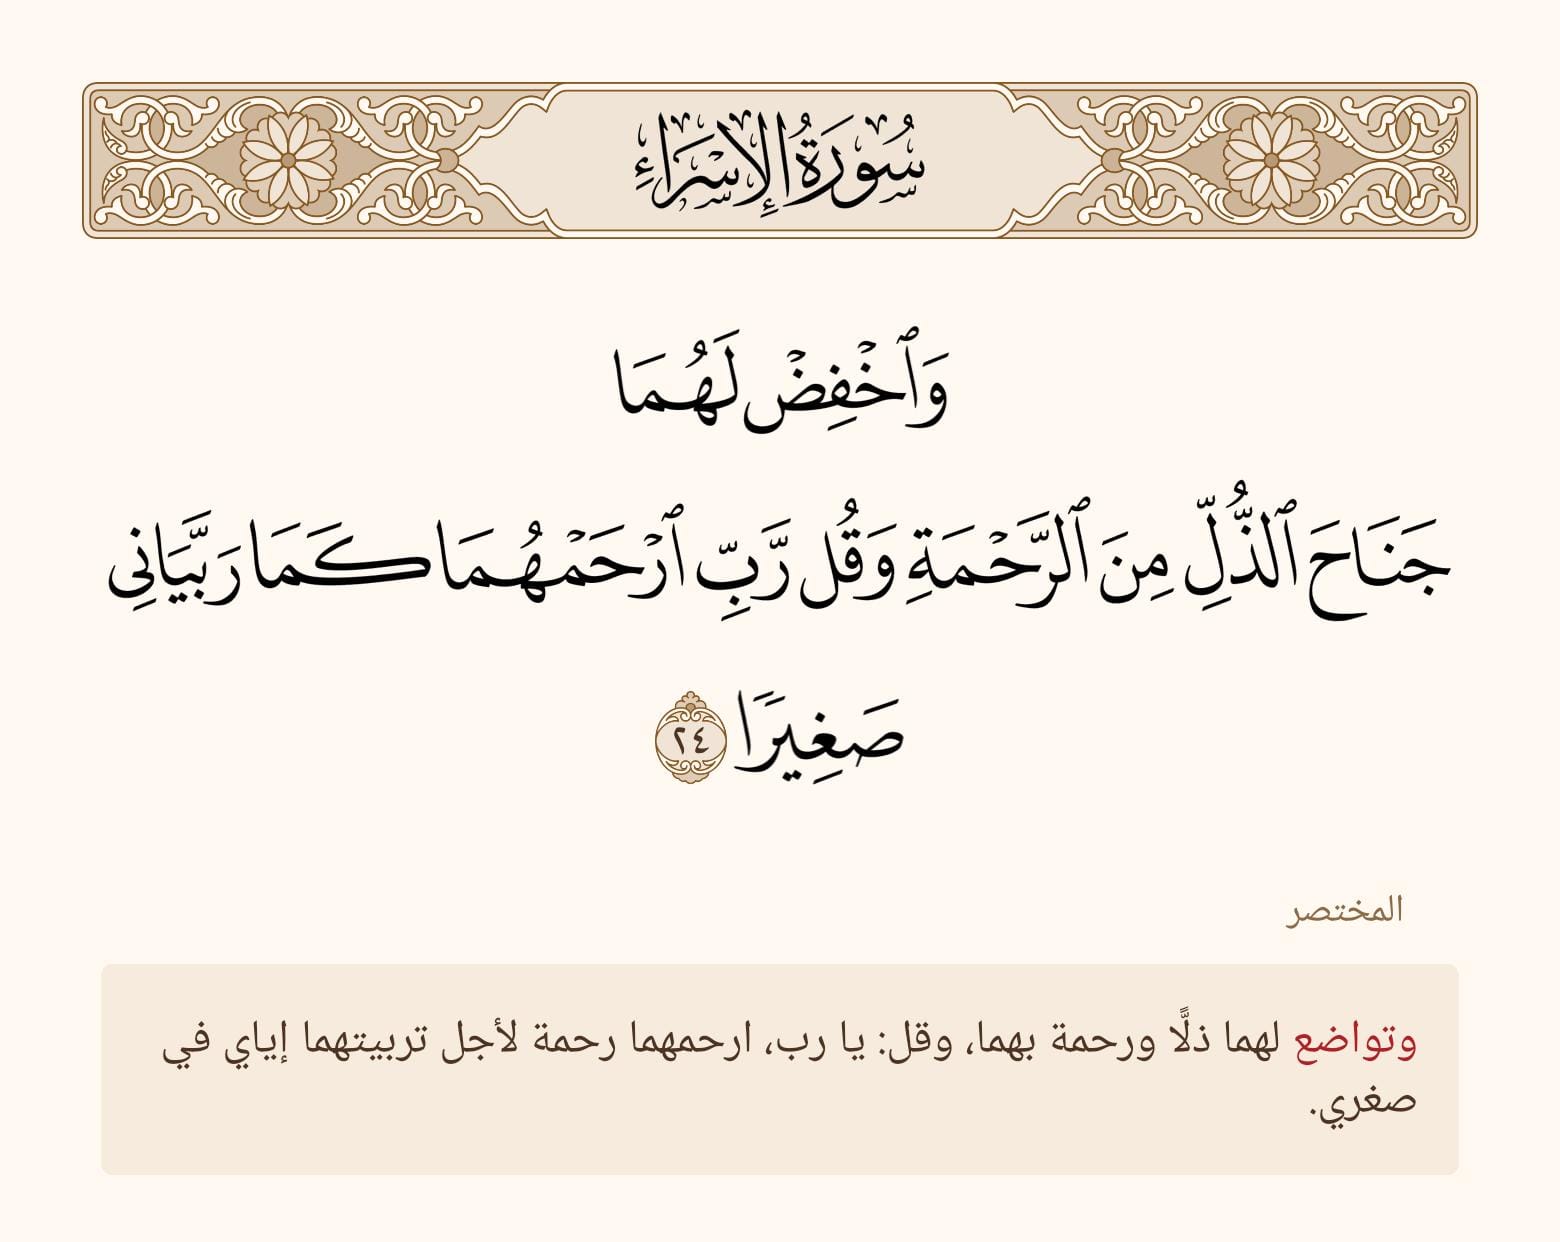 سُورَةُ الإِسْرَاءِ
وَٱخۡفِضۡ لَهُمَا
جَنَاحَ ٱلذُّلِّ مِنَ ٱلرَّحۡمَةِ وَقُل رَّبِّ ٱرۡحَمۡهُمَا كَمَا رَبَّيَانِي
صَغِيرٗا ٢٤
المختصر
وتواضع لهما ذلًّا ورحمة بهما، وقل: يا رب، ارحمهما رحمة لأجل تربيتهما إياي في
صغري.